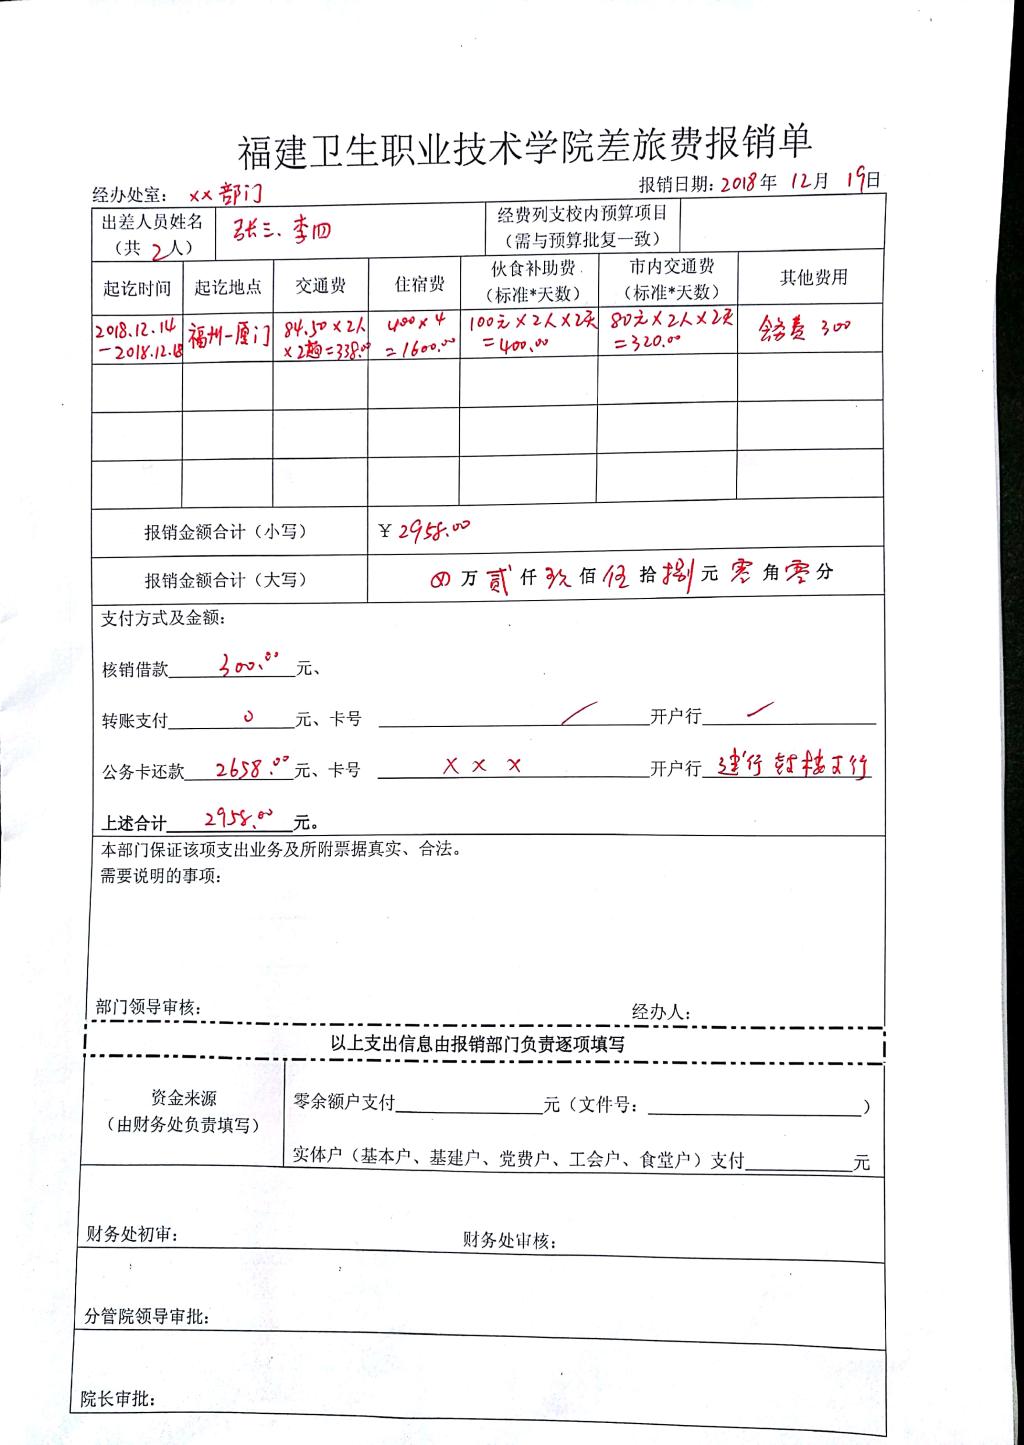 福建卫生职业技术学院差旅费报销单
经办处室：xx部门 报销日期：2018年 12月 19日
出差人员姓名（共 2人） 张三、李四 经费列支校内预算项目（需与预算批复一致）
起讫时间 起讫地点 交通费 住宿费 伙食补助费（标准*天数） 市内交通费（标准*天数） 其他费用
2018.12.14－2018.12.18 福州-厦门 84.50×2人×2趟=338.00 400×4=1600.00 100元×2人×2天=400.00 80元×2人×2天=320.00 会务费 300
报销金额合计（小写） ￥2958.00
报销金额合计（大写） ⊗万贰仟玖佰伍拾捌元零角零分
支付方式及金额：
核销借款 300.00 元、
转账支付 0 元、卡号 / 开户行 /
公务卡还款 2658.00 元、卡号 X X X 开户行 建行鼓楼支行
上述合计 2958.00 元。
本部门保证该项支出业务及所附票据真实、合法。
需要说明的事项：
部门领导审核： 经办人：
以上支出信息由报销部门负责逐项填写
资金来源（由财务处负责填写） 零余额户支付 元（文件号： ）
实体户（基本户、基建户、党费户、工会户、食堂户）支付 元
财务处初审： 财务处审核：
分管院领导审批：
院长审批：